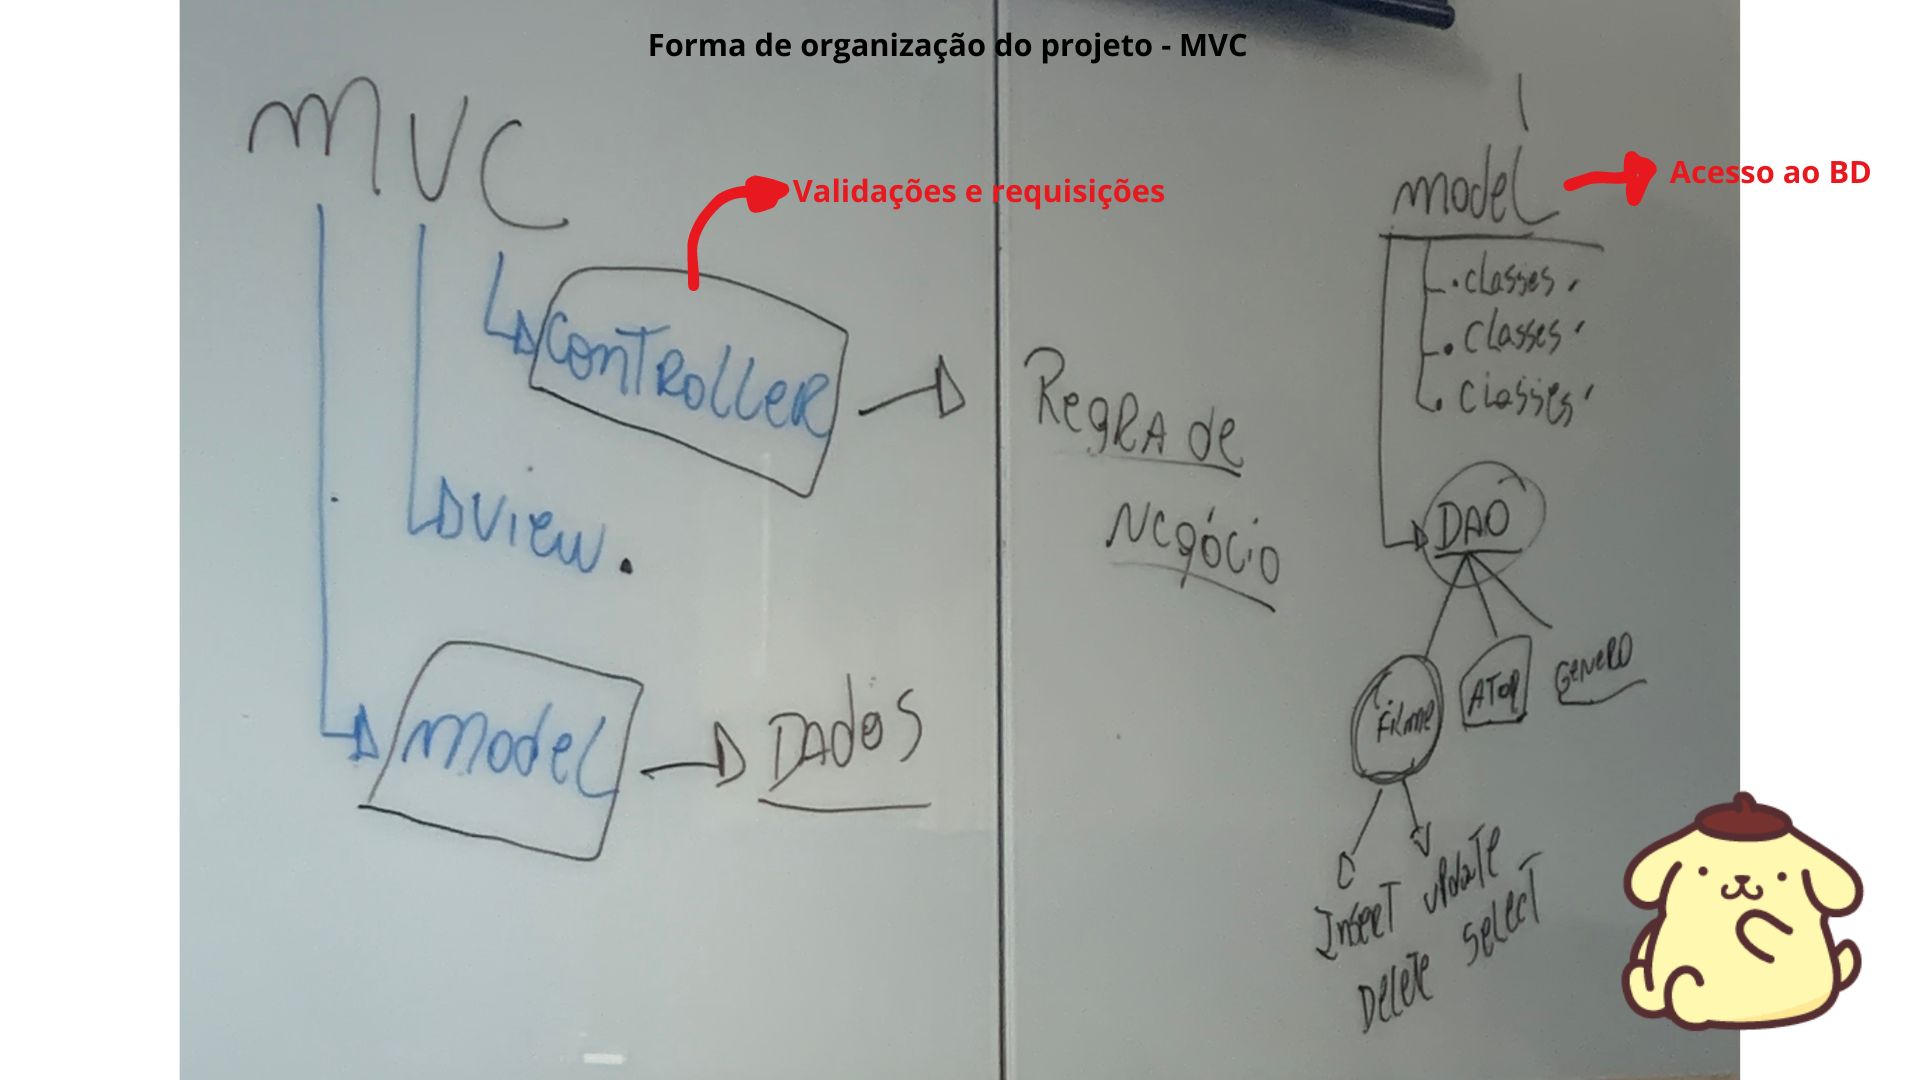 Forma de organização do projeto - MVC
MVC
Validações e requisições
Controller
Regra de
Negócio
View.
Model
Dados
Model
Acesso ao BD
. classes
. classes
. classes
DAO
Filme
Ator
Genero
Insert update
Delete select